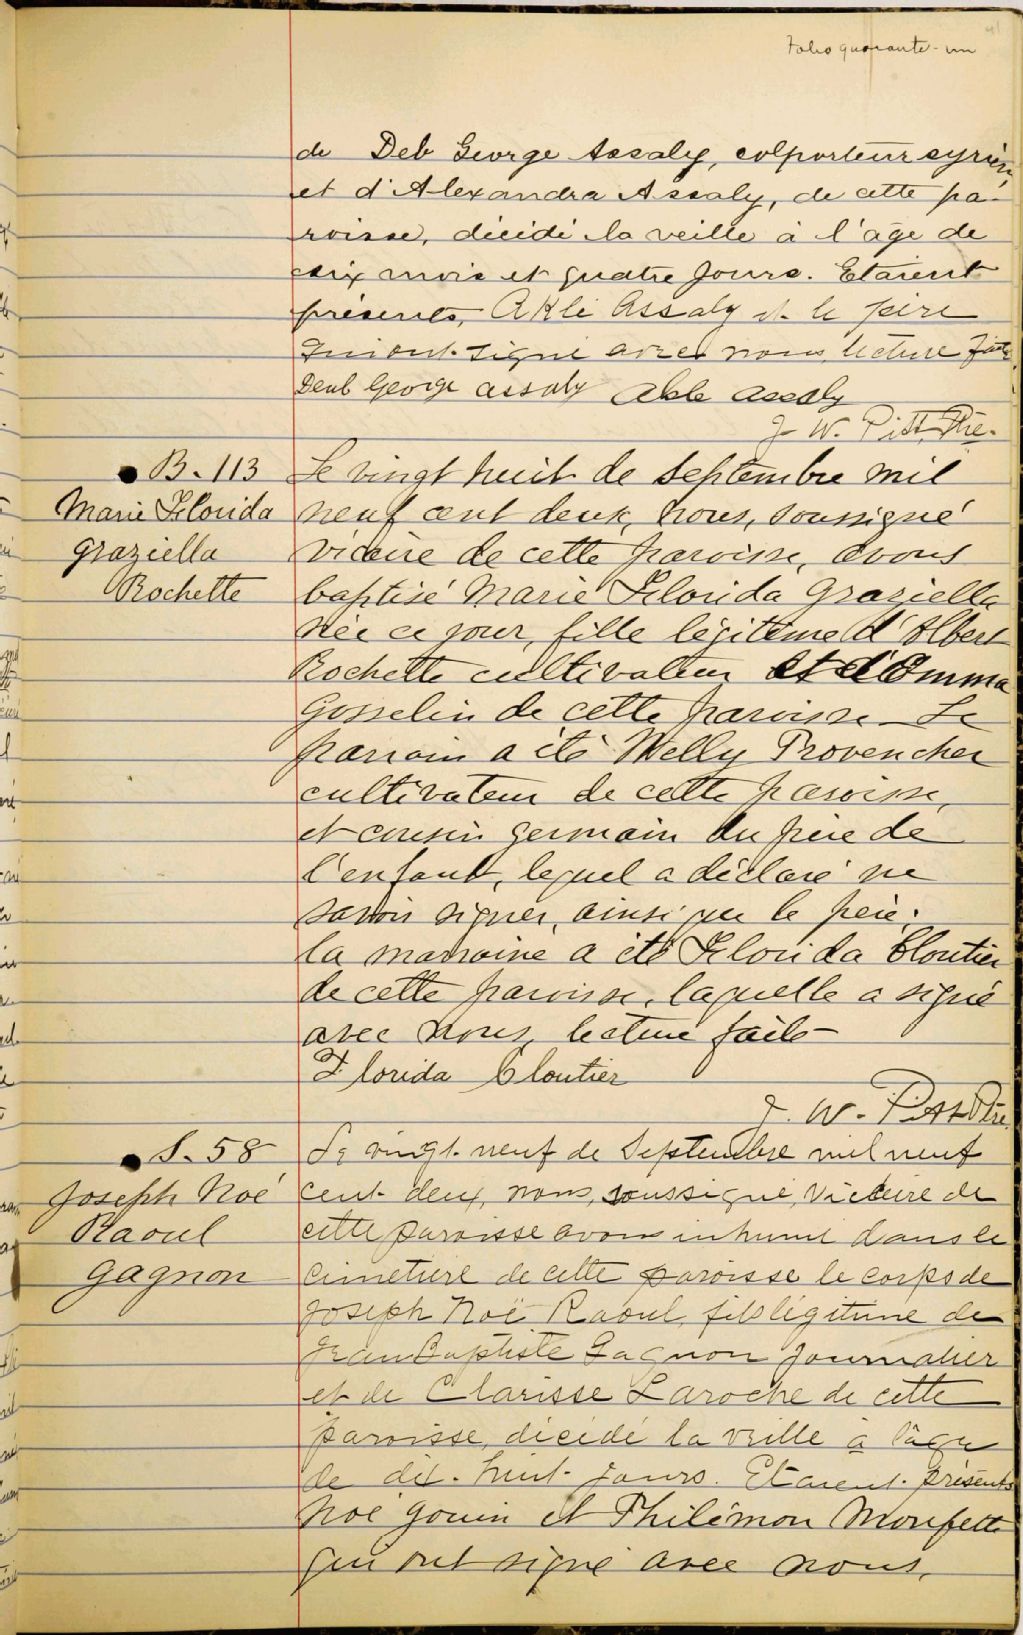 Folio quarante-un
de Deb George Assaly, colporteur syrien
et d'Alexandra Assaly, de cette pa-
roisse, décédé la veille à l'âge de
six mois et quatre jours. Etaient
présents, Akli Assaly et le père
qui ont signé avec nous, lecture faite
Deub George assaly Akle assaly
J. W. Pitt, Ptre.
B. 113
Marie Florida
Graziella
Rochette
Le vingt huit de Septembre mil
neuf cent deux, nous, soussigné
vicaire de cette paroisse, avons
baptisé Marie Florida Graziella
née ce jour, fille légitime d'Albert
Rochette cultivateur et d'Emma
Gosselin de cette paroisse - Le
parrain a été Welly Provencher
cultivateur de cette paroisse,
et cousin germain du père de
l'enfant, lequel a déclaré ne
savoir signer, ainsi que le père.
la marraine a été Florida Cloutier
de cette paroisse, laquelle a signé
avec nous, lecture faite-
Florida Cloutier
J. W. Pitt Ptre.
S. 58
Joseph Noé
Raoul
Gagnon
Le vingt-neuf de Septembre mil neuf
cent-deux, nous, soussigné, Vicaire de
cette paroisse avons inhumé dans le
cimetière de cette paroisse le corps de
Joseph Noë Raoul, fils légitime de
Jean Baptiste Gagnon journalier
et de Clarisse Laroche de cette
paroisse, décédé la veille à l'âge
de dix-huit jours. Etaient présents
Noé Gouin et Philémon Monfette
qui ont signé avec nous.